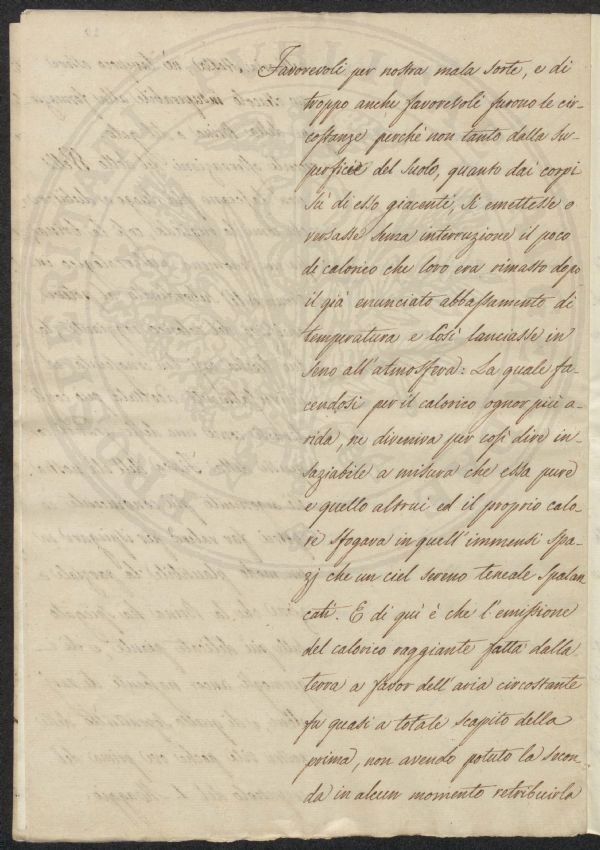 Favorevoli per nostra mala sorte, e di
troppo anche favorevoli furono le cir-
costanze perchè non tanto dalla Su-
perficie del Suolo, quanto dai corpi
sù di esso giacenti, si emettesse o
versasse senza interruzione il poco
di calorico che loro era rimasto dopo
il già enunciato abbassamento di
temperatura e così lanciasse in
seno all'atmosfera: La quale fa-
cendosi per il calorico ognor più a-
rida, ne diveniva per così dire in-
saziabile a misura che essa pure
e quello altrui ed il proprio calo-
re sfogava in quell'immensi spa-
zj che un ciel sereno teneale spalan
cati. E di qui è che l'emissione
del calorico raggiante fatta dalla
terra a favor dell'aria circostante
fu quasi a totale scapito della
prima, non avendo potuto la secon-
da in alcun momento retribuirla